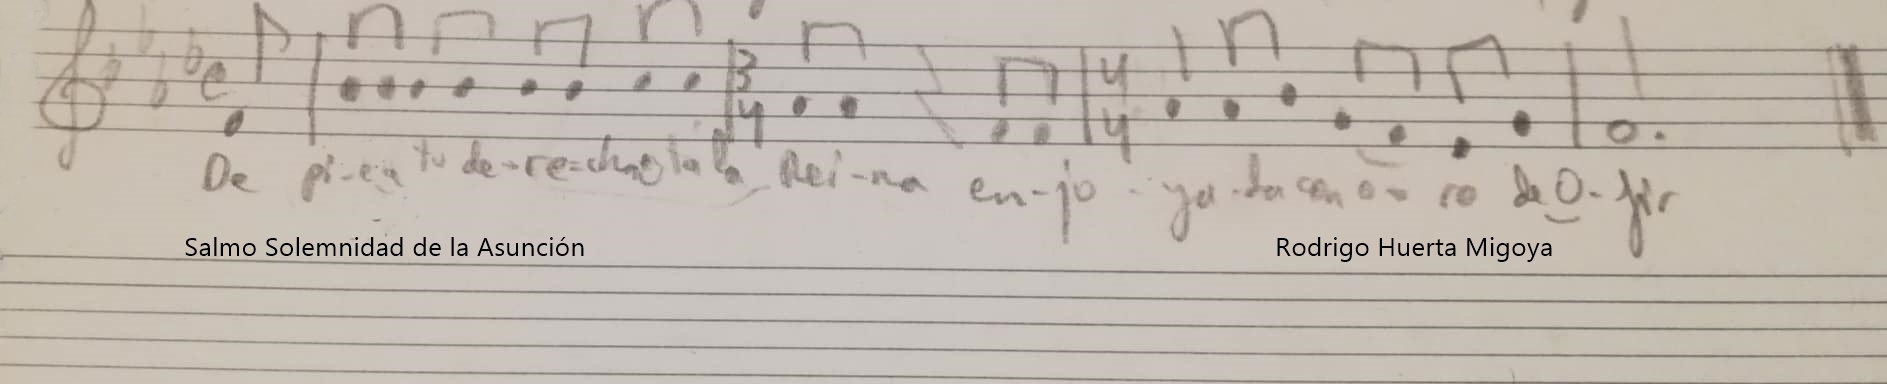 De pi-e a tu de-re-cha está la Rei-na en-jo-ya-da con o-ro de O-fir
Salmo Solemnidad de la Asunción Rodrigo Huerta Migoya